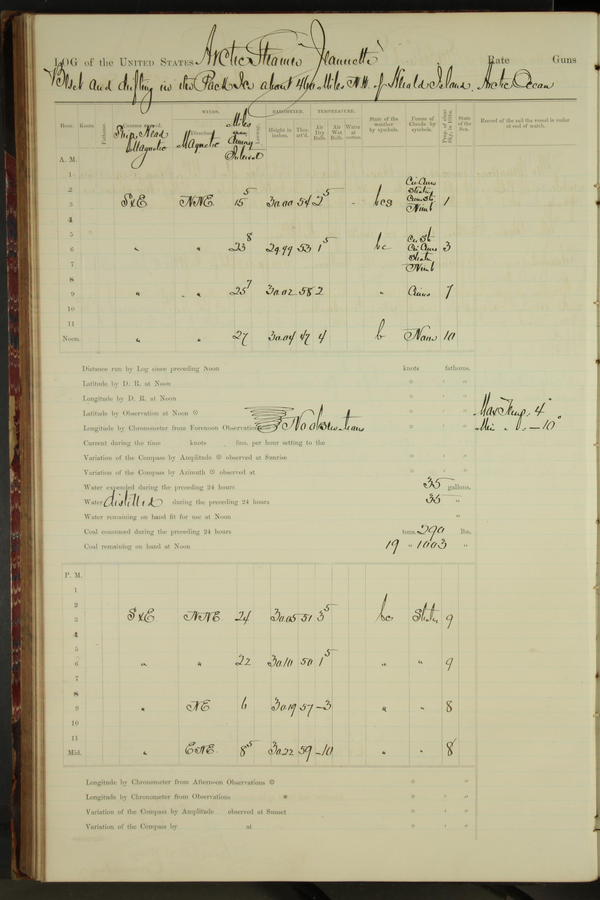 LOG of the UNITED STATES Arctic Steamer Jeannette Rate Guns
Beset and drifting in the Pack Ice about Miles N.W. of Herald Island. Arctic Ocean
WINDS. BAROMETER. TEMPERATURE.
Hour. Knots. Fathoms. Ship's Head Magnetic Magnetic Miles Leeway. Height in inches. Ther. att'd. Air Dry Bulb. Air Wet Bulb. Water at surface. State of the weather by symbols. Forms of Clouds by symbols. State of the Sea. Record of the sail the vessel is under at end of watch.
A. M.
1
2
3 SxE NNE 15 5 30.00 54 2 5 bcs 1
4
5
6 " " 23 8 29.99 53 1 5 bc 3
7
8
9 " " 25 7 30.02 58 2 " Cirrus 7
10
11
Noon. " " 27 30.04 47 4 b None 10
Distance run by Log since preceding Noon knots fathoms.
Latitude by D. R. at Noon ° ′ ″
Longitude by D. R. at Noon ° ′ ″
Latitude by Observation at Noon ° ′ ″ Max Temp. 4°
Longitude by Chronometer from Forenoon Observation No observations ° ′ ″ Min " " –10°
Current during the time knots fms. per hour setting to the
Variation of the Compass by Amplitude observed at Sunrise ° ′ ″
Variation of the Compass by Azimuth observed at ° ′ ″
Water expended during the preceding 24 hours 35 gallons.
Water distilled during the preceding 24 hours 35 "
Water remaining on hand fit for use at Noon "
Coal consumed during the preceding 24 hours tons. 290 lbs.
Coal remaining on hand at Noon 19 " 1003 "
P. M.
1
2
3 SxE NNE 24 30.05 51 3 5 bc Stratus 9
4
5
6 " " 22 30.10 50 1 5 " " 9
7
8
9 " NE 6 30.19 57 –3 " " 8
10
11
Mid. " ENE 8 5 30.22 59 –10 " " 8
Longitude by Chronometer from Afternoon Observations ° ′ ″
Longitude by Chronometer from Observations ° ′ ″
Variation of the Compass by Amplitude observed at Sunset ° ′ ″
Variation of the Compass by at ° ′ ″